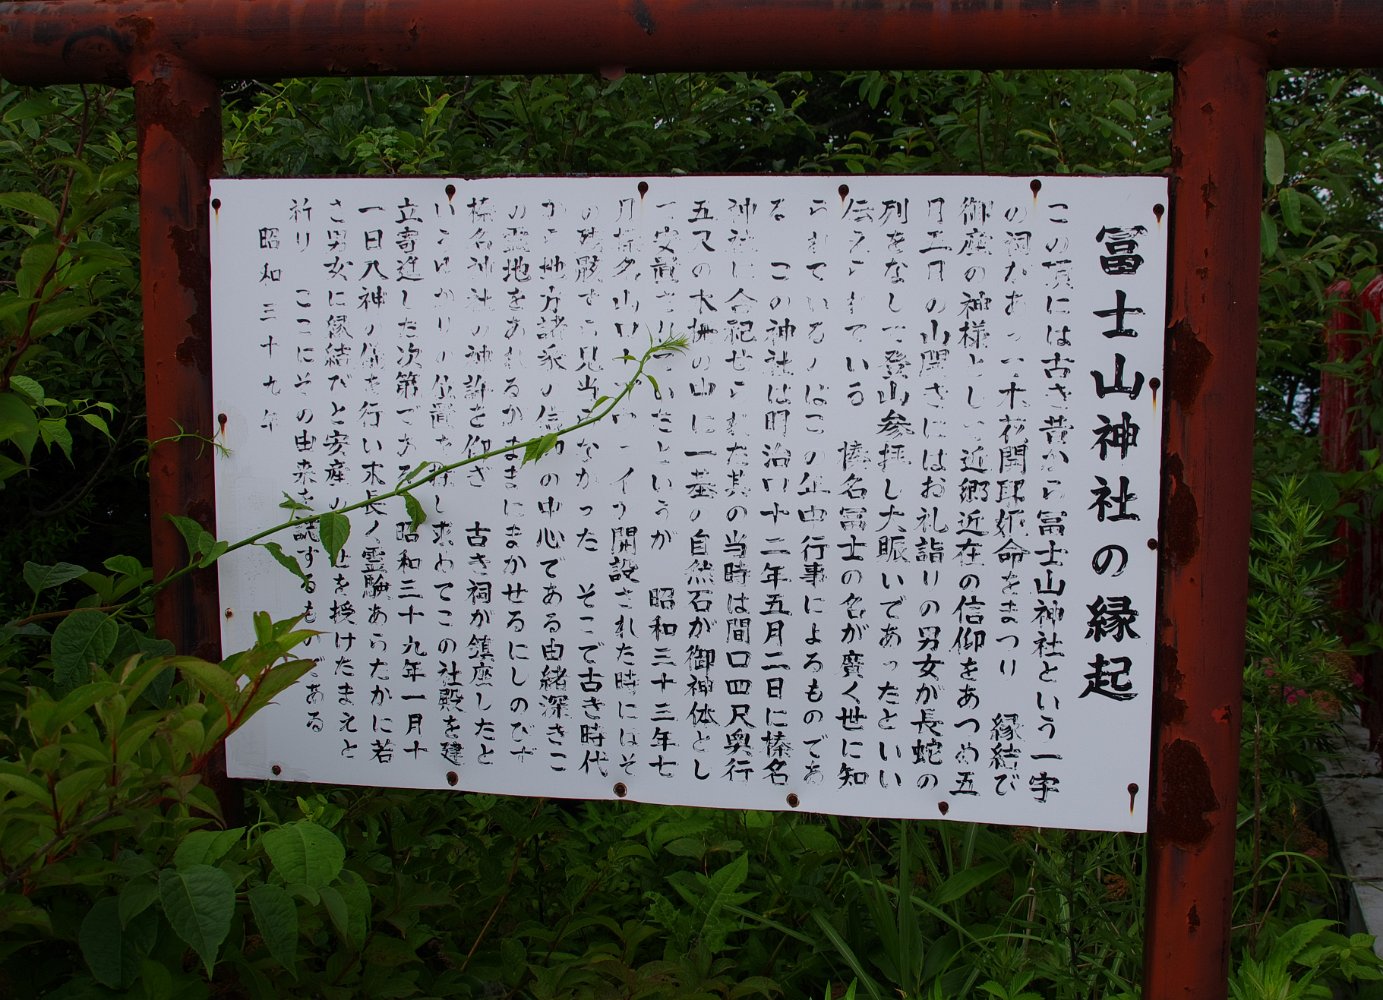 冨士山神社の縁起
この頂には古き昔から冨士山神社という一宇
の祠があって木花開耶姫命をまつり　縁結び
御産の神様として近郷近在の信仰をあつめ五
月五日の山開きにはお礼詣りの男女が長蛇の
列をなして登山参拝し大賑いであったといい
伝えられている　榛名冨士の名が廣く世に知
られているのはこの年中行事によるものであ
る　この神社は明治四十二年五月二日に榛名
神社に合祀せられた其の当時は間口四尺奥行
五尺の木柵の山に一基の自然石が御神体とし
て安置されていたというが　昭和三十三年七
月榛名山ロープウェイが開設された時にはそ
の残骸すら見当らなかった　そこで古き時代
から地方諸氏の信仰の中心である由緒深きこ
の霊地をあれるがままにまかせるにしのびず
榛名神社の神許を仰ぎ　古き祠が鎮座したと
いうゆかりの位置を探し求めてこの社殿を建
立寄進した次第である　昭和三十九年一月十
一日入神の儀を行い末長く霊験あらたかに若
き男女に縁結びと安産の幸せを授けたまえと
祈り　ここにその由来を誌するものである
昭和三十九年